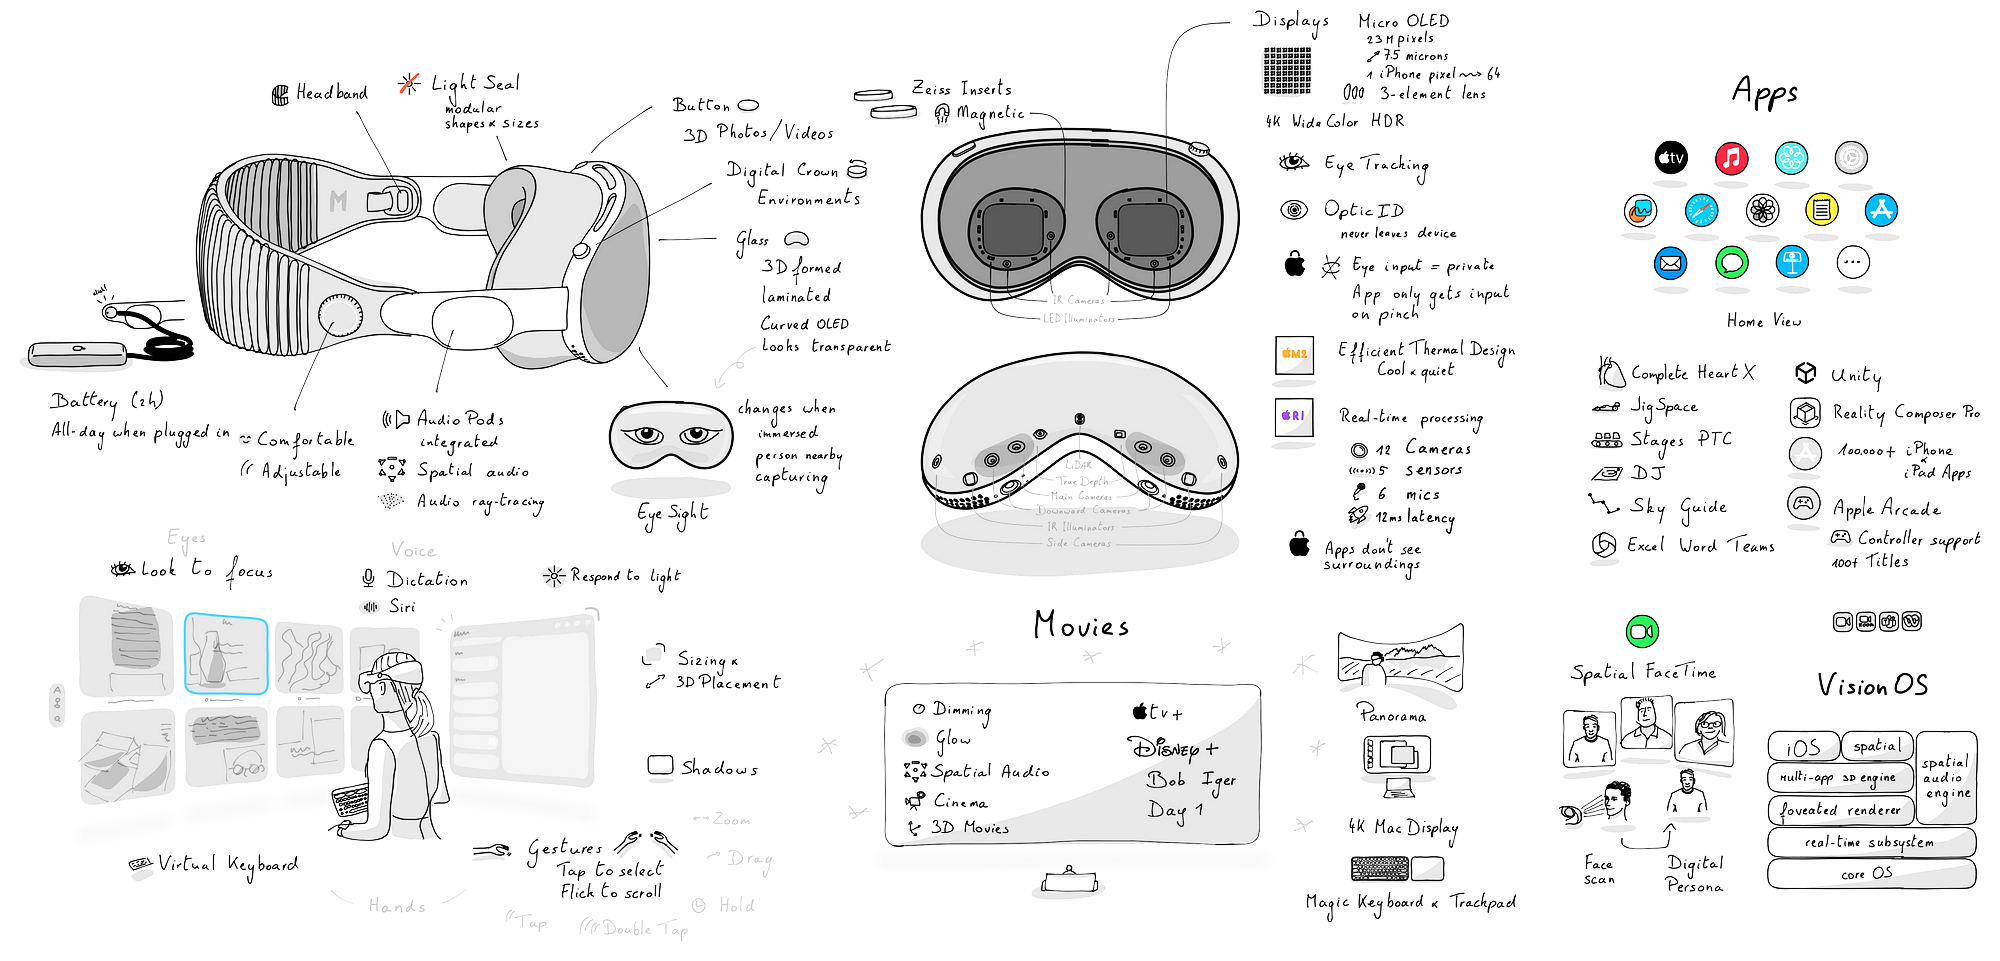 Headband
Light Seal
modular
shapes & sizes
Button
3D Photos/Videos
Digital Crown
Environments
Glass
3D formed
laminated
Curved OLED
Looks transparent
M
Battery (2h)
All-day when plugged in
Comfortable
Adjustable
Audio Pods
integrated
Spatial audio
Audio ray-tracing
changes when
immersed
person nearby
capturing
Eye Sight
Zeiss Inserts
Magnetic
IR Cameras
LED Illuminators
LiDAR
True Depth
Main Cameras
Downward Cameras
IR Illuminators
Side Cameras
Displays
Micro OLED
23M pixels
7.5 microns
1 iPhone pixel 64
3-element lens
4K Wide Color HDR
Eye Tracking
Optic ID
never leaves device
Eye input = private
App only gets input
on pinch
M2
Efficient Thermal Design
Cool & quiet
R1
Real-time processing
12 Cameras
5 sensors
6 mics
12ms latency
Apps don't see
surroundings
Apps
tv
Home View
Complete Heart X
JigSpace
Stages PTC
DJ
Sky Guide
Excel Word Teams
Unity
Reality Composer Pro
100.000+ iPhone
&
iPad Apps
Apple Arcade
Controller support
100+ Titles
Eyes
Look to focus
Voice
Dictation
Siri
Respond to light
Sizing &
3D Placement
Shadows
Zoom
Drag
Hold
Virtual Keyboard
Hands
Gestures
Tap to select
Flick to scroll
Tap
Double Tap
Movies
Dimming
Glow
Spatial Audio
Cinema
3D Movies
tv+
Disney+
Bob Iger
Day 1
Panorama
4K Mac Display
Magic Keyboard & Trackpad
Spatial FaceTime
Face
scan
Digital
Persona
Vision OS
iOS
spatial
spatial
audio
engine
Multi-app 3D engine
foveated renderer
real-time subsystem
core OS